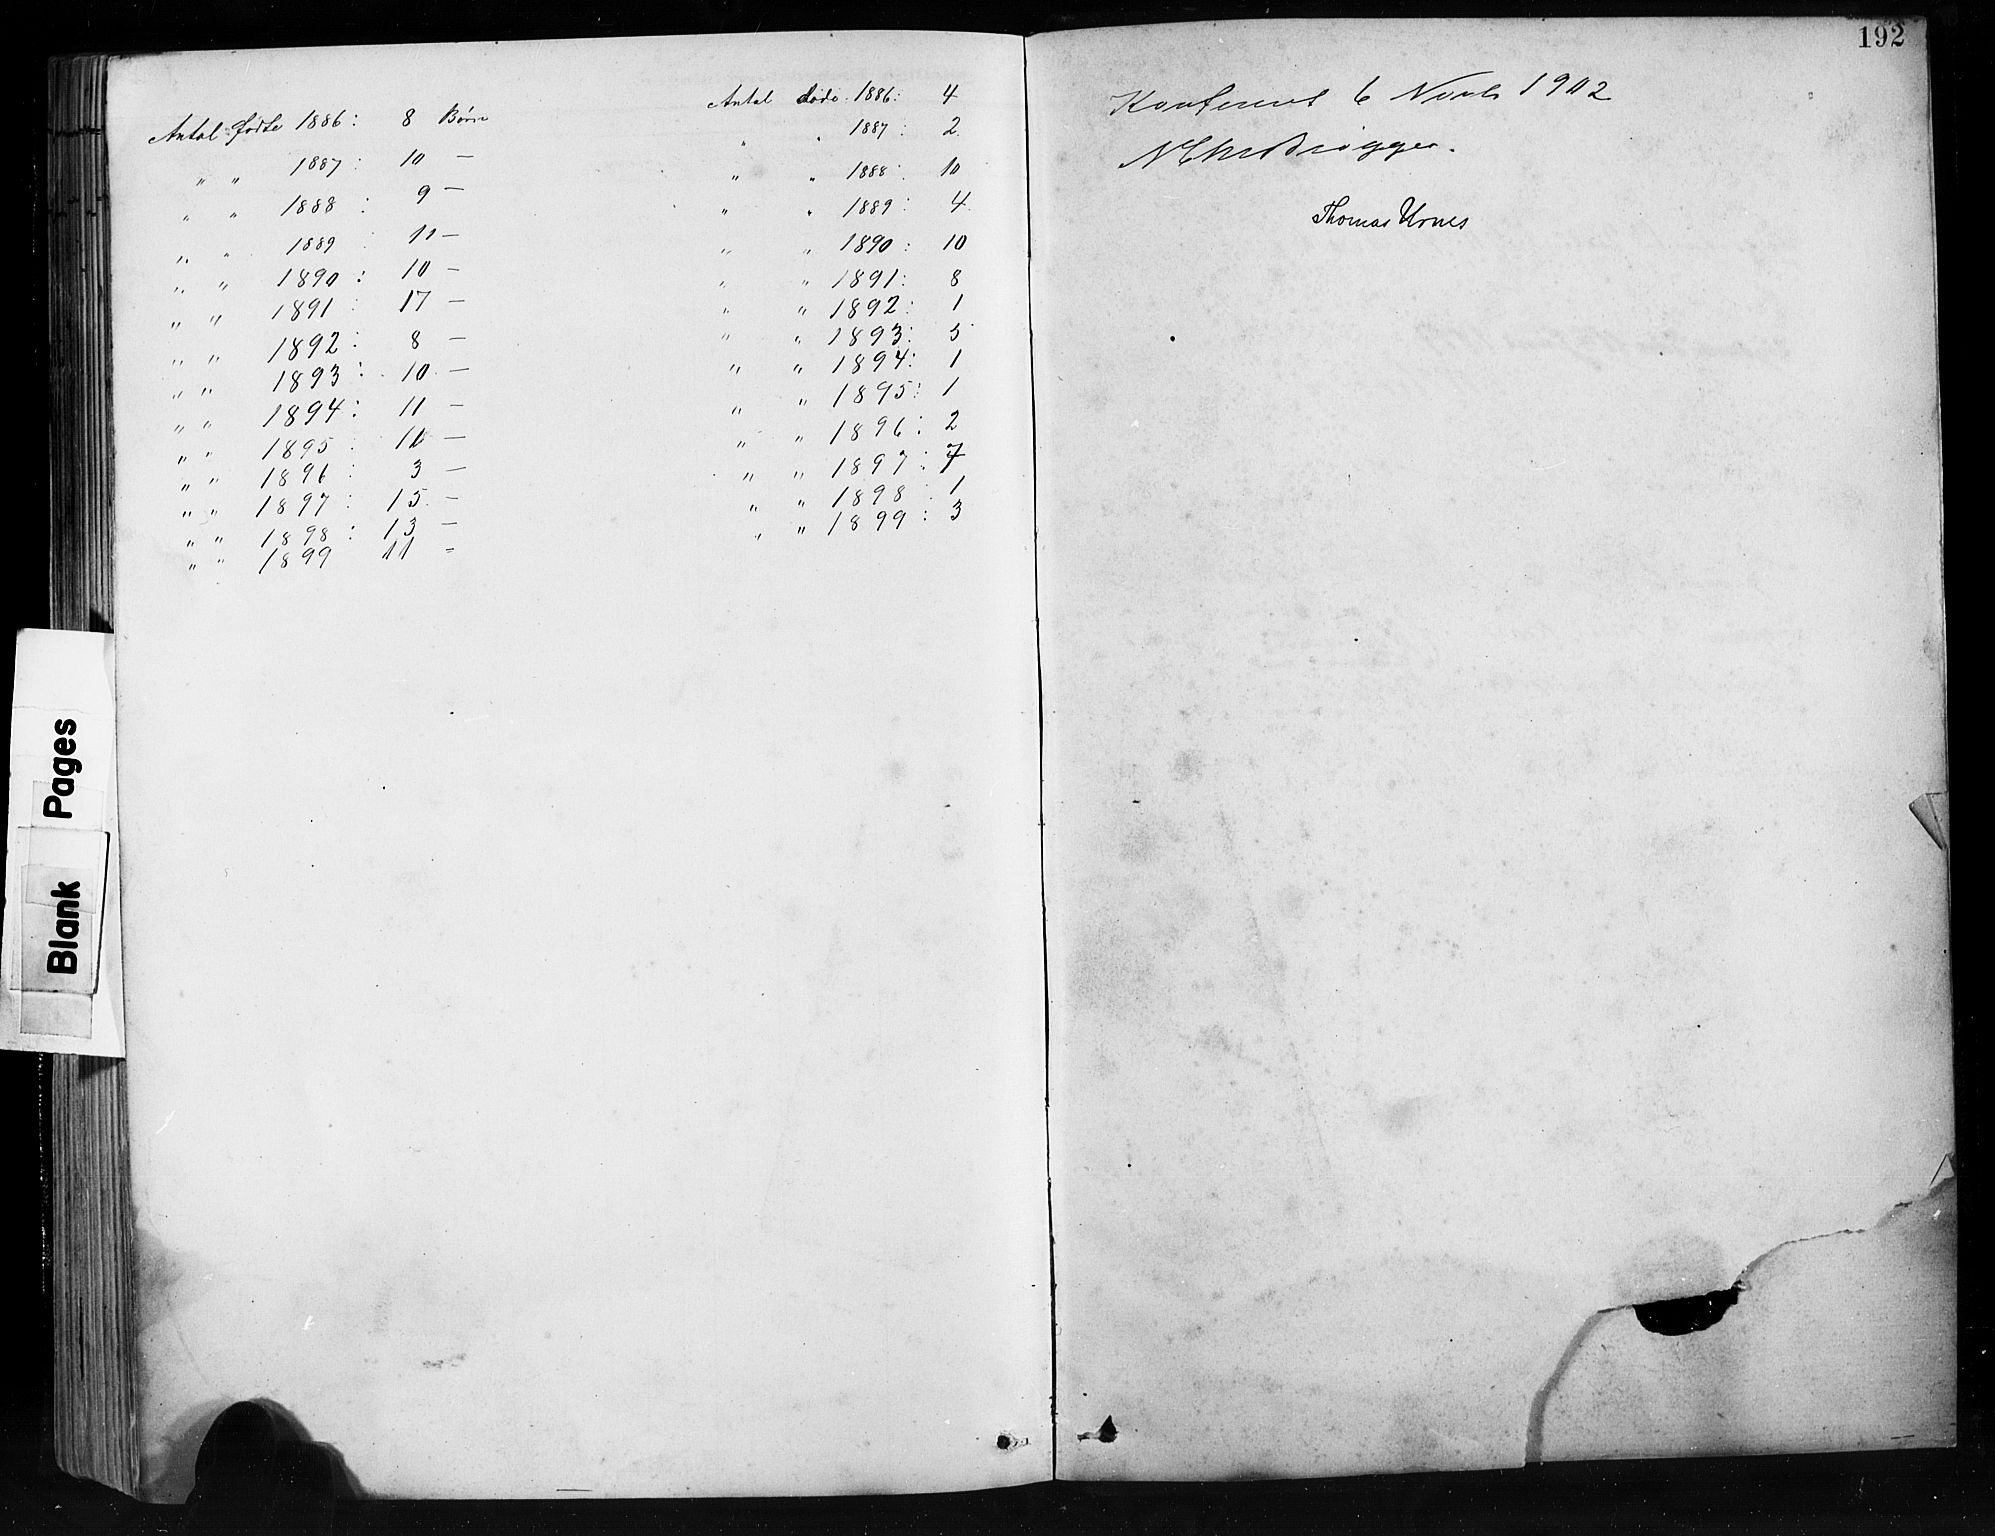 Antal fødte 1886: 8 Børn
" " 1887: 10 —
" " 1888: 9 —
" " 1889: 11 —
" " 1890: 10 —
" " 1891: 17 —
" " 1892: 8 —
" " 1893: 10 —
" " 1894: 11 —
" " 1895:
" " 1896: 3 —
" " 1897: 15 —
" " 1898: 13 —
" " 1899 11 "
Antal døde 1886: 4
" " 1887: 2
" " 1888: 10
" " 1889: 4
" " 1890: 10
" " 1891: 8
" " 1892: 1
" " 1893: 5
" " 1894: 1
" " 1895: 1
" " 1896: 2
" " 1897: 7
" " 1898: 1
" " 1899: 3
192
Konfereret 6 Novb 1902
Brøgger.
Thomas Urnes
Blank Pages